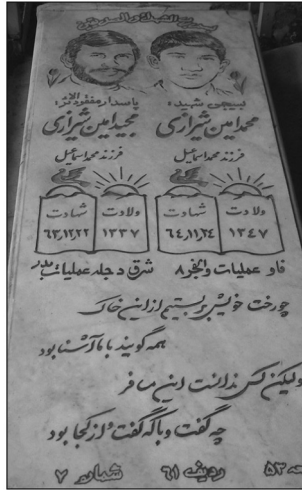 بسم رب الشهداء والصدیقین
بسیجی شهید:
محمد امین شیرازی
فرزند محمد اسماعیل
ولادت
۱۳۴۷
شهادت
۶۴,۱۱,۲۴
فاو عملیات والفجر ۸
پاسدار مفقودالاثر:
مجید امین شیرازی
فرزند محمد اسماعیل
ولادت
۱۳۳۷
شهادت
۶۳,۱۲,۲۲
شرق دجله عملیات بدر
چو رخت خویش بربستیم از این خاک
همه گویند با ما آشنا بود
ولیکن کس ندانست این مسافر
چه گفت و با که گفت و از کجا بود
۵۳ ردیف ۶۱ شماره ۷